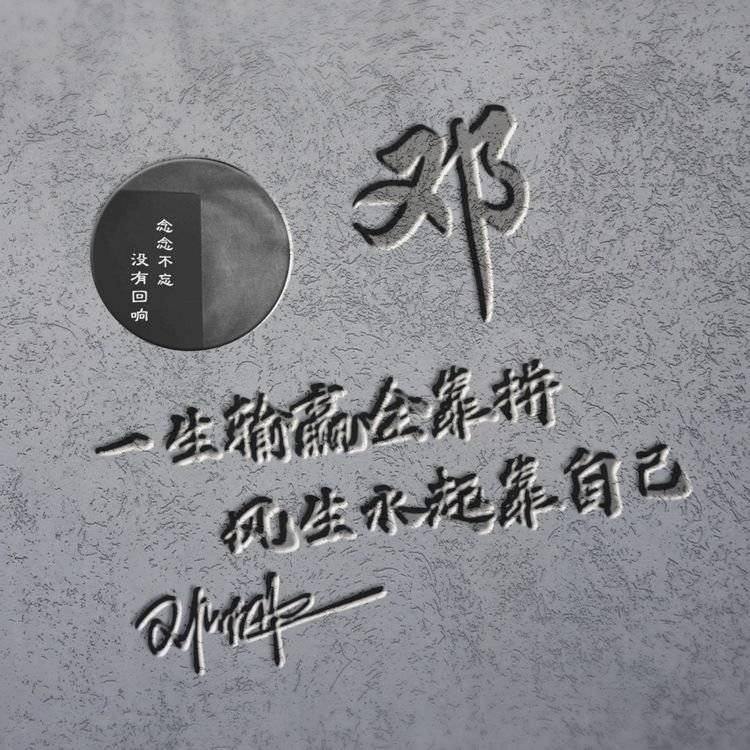 邓
念念不忘
没有回响
一生输赢全靠拼
风生水起靠自己
邓